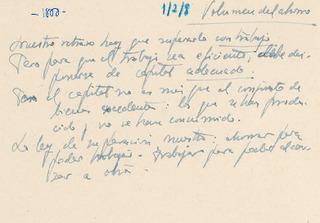 -1800-
1/2/8
Volumen del ahorro
Nuestro retraso hay que superarlo con trabajo
Pero para que el trabajo sea eficiente, debe dis-
ponerse de capital adecuado.
Pero el capital no es más que el conjunto de
bienes excedente: lo que se han produ-
cido y no se han consumido.
La ley de superación nuestra: ahorrar para
poder trabajar. Trabajar para poder alcan-
zar a otros.